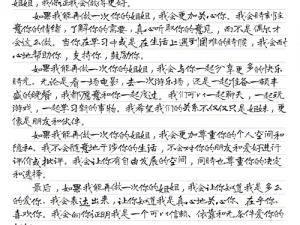 姐，我保证我会做得更好。
如果我能再做一次你的姐姐，我会更加关心你。我会时刻注
意你的情绪，了解你的需要，真心听你的意见，而不是偶尔才
会这么做。当你在学习中或是在生活上遇到困难的时候，我会耐
心地帮助你，支持你，鼓励你。
如果我能再做一次你的姐姐，我会与你一起分享更多的快乐
时光。无论是看一场电影，去一次游乐场，还是一起准备一顿丰
盛的晚餐，我都愿意和你一起度过。我们可以一起聊天，一起玩
游戏，一起学习新的事物。我希望我们的关系不仅仅只是姐妹，更
像是朋友和伙伴。
如果我能再做一次你的姐姐，我会更加尊重你的个人空间和
隐私。我不会随意地干涉你的生活，不会对你的朋友和爱好进行
评价或批评。我会让你有自由发展的空间，同时也尊重你的决定
和选择。
最后，如果我能再做一次你的姐姐，我会让你知道我是多么
的爱你。我会表达出来，让你知道我是真心地关心你、在乎你、
喜欢你。我会向你证明我是一个可以信赖、依靠和无条件爱你的